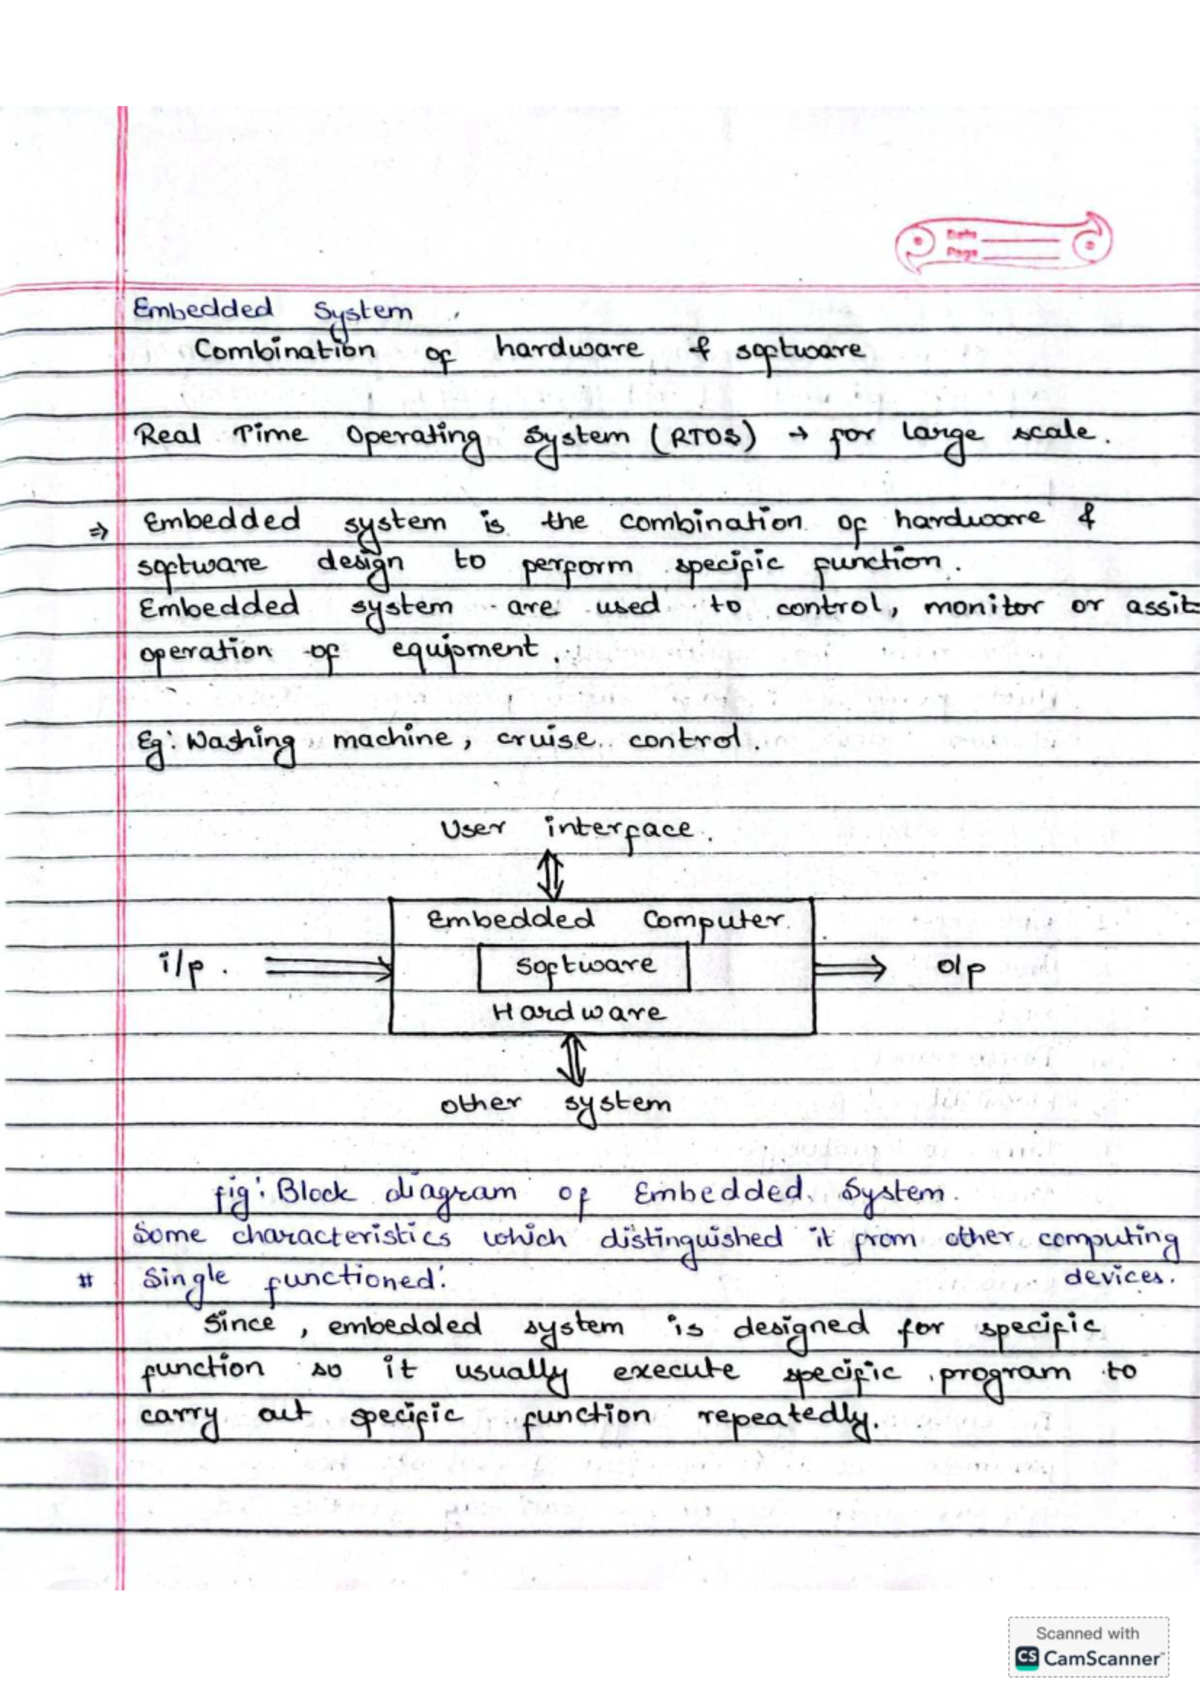 Date
Page
Embedded System
Combination of hardware & software
Real Time Operating System (RTOS) → for large scale.
⇒ Embedded system is the combination of hardware &
software design to perform specific function.
Embedded system are used to control, monitor or assit
operation of equipment.
Eg: Washing machine, cruise control.
User interface.
Embedded Computer
i/p. Software o/p
Hardware
other system
fig: Block diagram of Embedded System.
Some characteristics which distinguished it from other computing
# Single functioned: devices.
Since, embedded system is designed for specific
function so it usually execute specific program to
carry out specific function repeatedly.
Scanned with
CS CamScanner